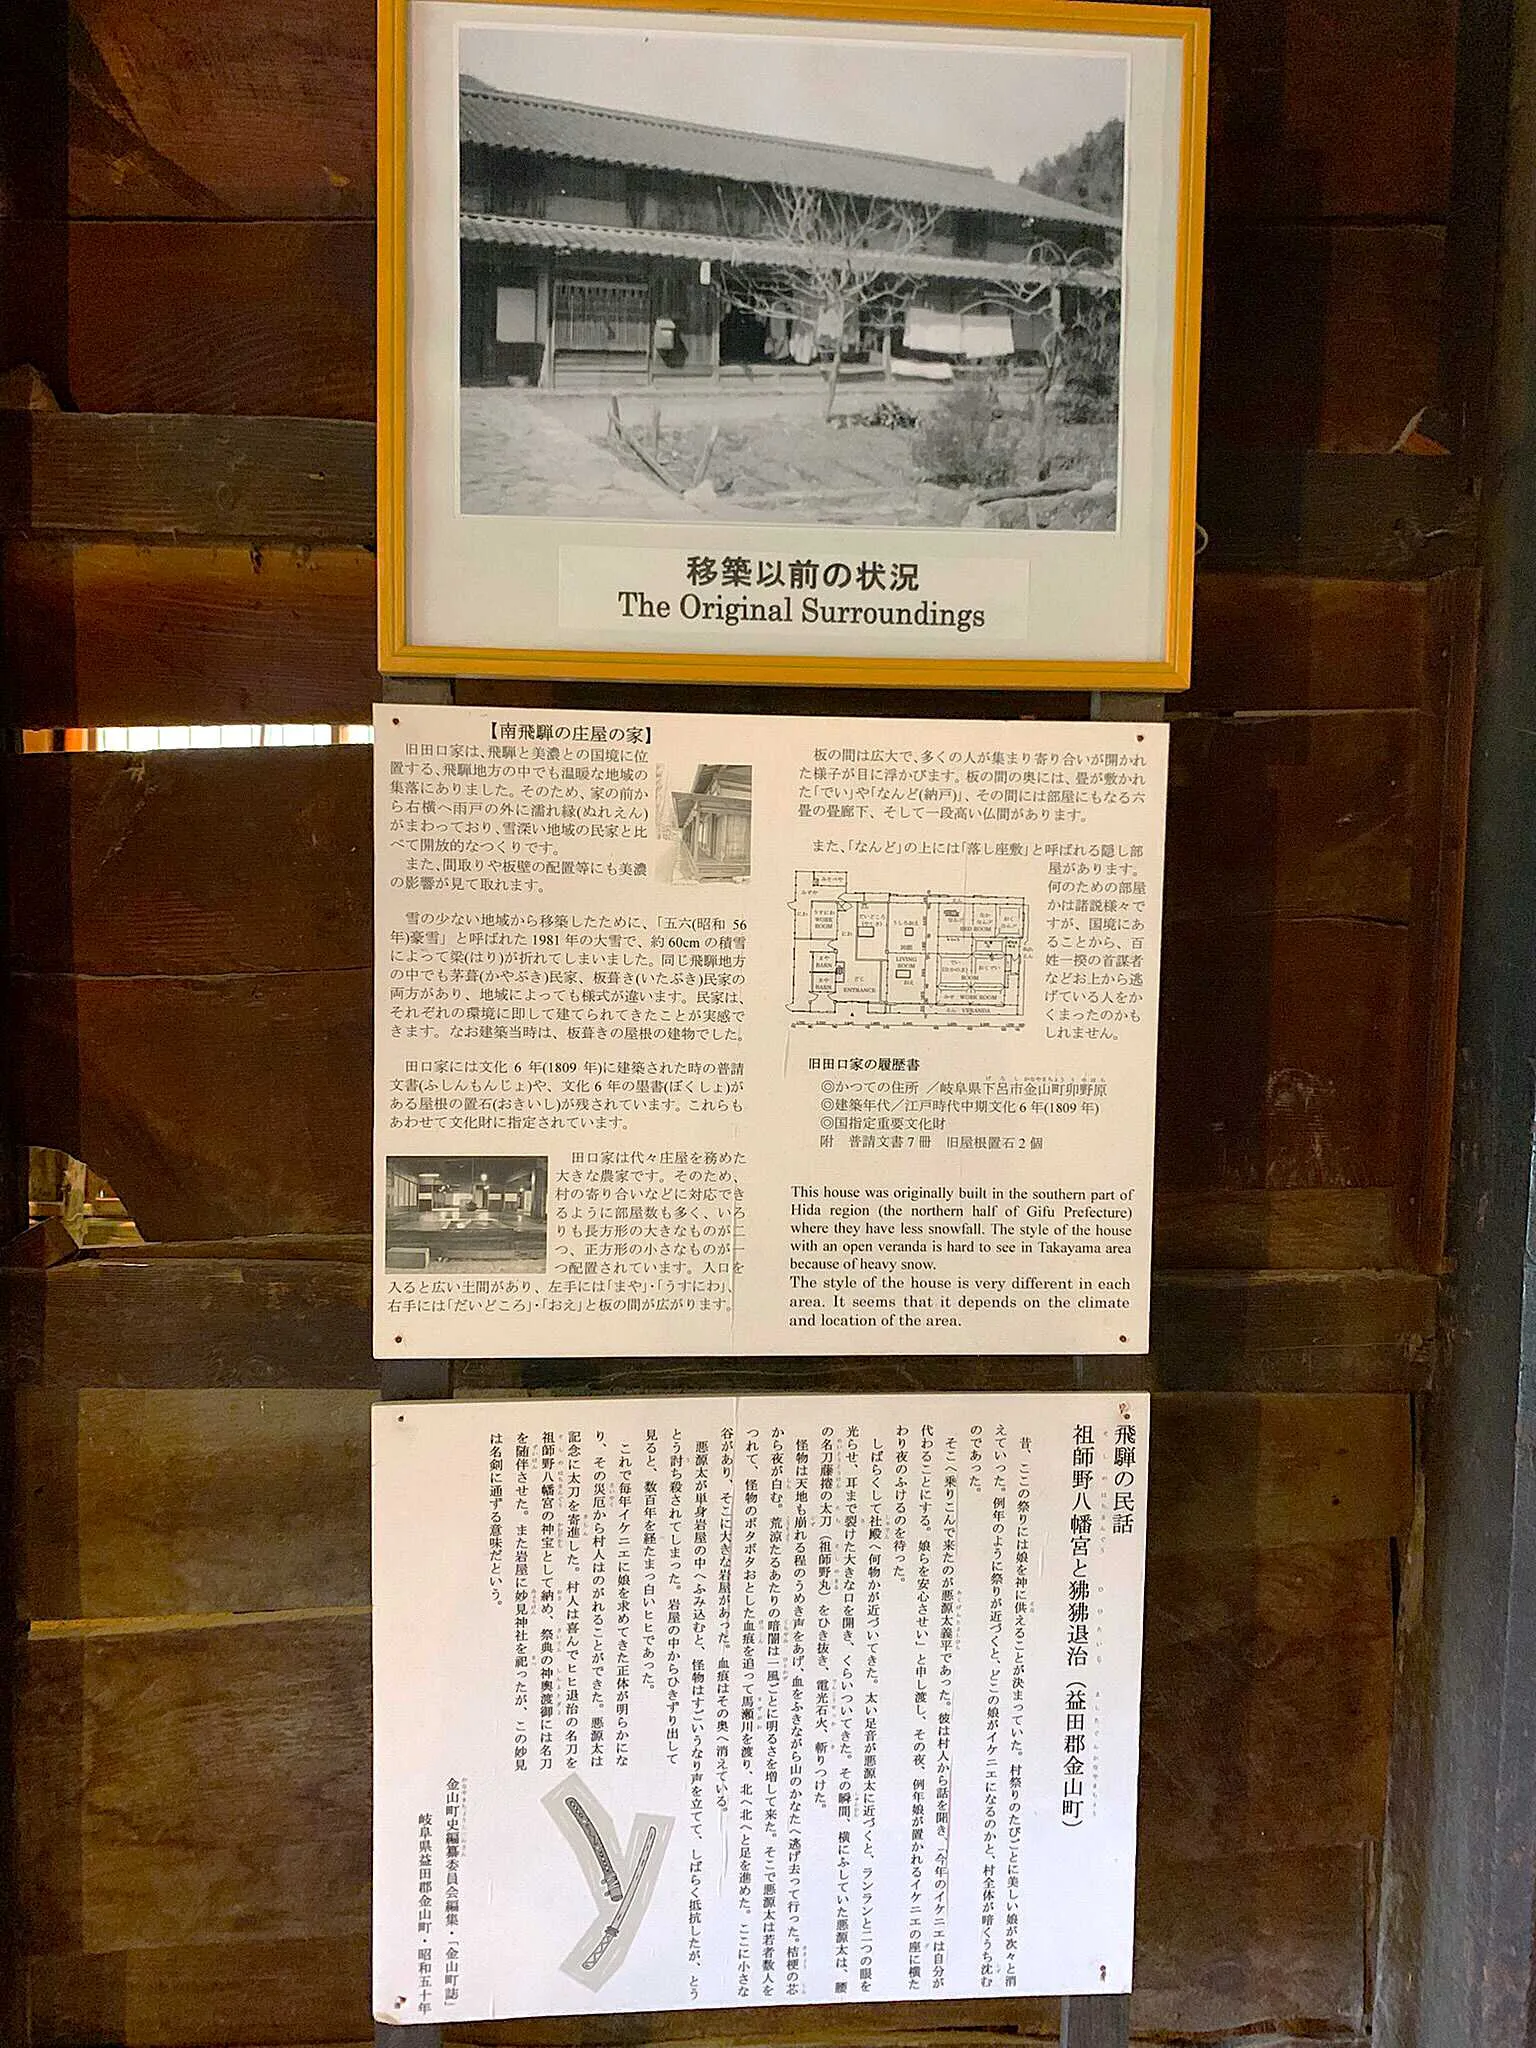 移築以前の状況
The Original Surroundings
【南飛騨の庄屋の家】
旧田口家は、飛騨と美濃との国境に位
置する、飛騨地方の中でも温暖な地域の
集落にありました。そのため、家の前か
ら右横へ雨戸の外に濡れ縁(ぬれえん)
がまわっており、雪深い地域の民家と比
べて開放的なつくりです。
また、間取りや板壁の配置等にも美濃
の影響が見て取れます。
雪の少ない地域から移築したために、「五六(昭和 56
年)豪雪」と呼ばれた 1981 年の大雪で、約60cm の積雪
によって梁(はり)が折れてしまいました。同じ飛騨地方
の中でも茅葺(かやぶき)民家、板葺き(いたぶき)民家の
両方があり、地域によっても様式が違います。民家は、
それぞれの環境に即して建てられてきたことが実感で
きます。なお建築当時は、板葺きの屋根の建物でした。
田口家には文化 6 年(1809 年)に建築された時の普請
文書(ふしんもんじょ)や、文化 6 年の墨書(ぼくしょ)が
ある屋根の置石(おきいし)が残されています。これらも
あわせて文化財に指定されています。
田口家は代々庄屋を務めた
大きな農家です。そのため、
村の寄り合いなどに対応でき
るように部屋数も多く、いろ
りも長方形の大きなものが二
つ、正方形の小さなものが一
つ配置されています。入口を
入ると広い土間があり、左手には「まや」・「うすにわ」、
右手には「だいどころ」・「おえ」と板の間が広がります。
板の間は広大で、多くの人が集まり寄り合いが開かれ
た様子が目に浮かびます。板の間の奥には、畳が敷かれ
た「でい」や「なんど(納戸)」、その間には部屋にもなる六
畳の畳廊下、そして一段高い仏間があります。
また、「なんど」の上には「落し座敷」と呼ばれる隠し部
屋があります。
何のための部屋
かは諸説様々で
すが、国境にあ
ることから、百
姓一揆の首謀者
などお上から逃
げている人をか
くまったのかも
しれません。
みそべや
みずや
にわ
うすにわ
WORK
ROOM
だいどころ
うしろおえ
なんど
なか
なんど
おく
なんど
BED ROOM
にわ
まや
BARN
まや
BARN
LIVING
ROOM
おえ
でい
おくでい
ROOM
どじ
ENTRANCE
WORK ROOM
えん VERANDA
旧田口家の履歴書
◎かつての住所 ／岐阜県下呂市金山町卯野原
◎建築年代／江戸時代中期文化 6 年(1809 年)
◎国指定重要文化財
附 普請文書 7 冊 旧屋根置石 2 個
This house was originally built in the southern part of
Hida region (the northern half of Gifu Prefecture)
where they have less snowfall. The style of the house
with an open veranda is hard to see in Takayama area
because of heavy snow.
The style of the house is very different in each
area. It seems that it depends on the climate
and location of the area.
飛騨の民話
祖師野八幡宮と狒狒退治（益田郡金山町）
昔、ここの祭りには娘を神に供えることが決まっていた。村祭りのたびごとに美しい娘が次々と消
えていった。例年のように祭りが近づくと、どこの娘がイケニエになるのかと、村全体が暗くうち沈む
のであった。
そこへ乗りこんで来たのが悪源太義平であった。彼は村人から話を聞き、「今年のイケニエは自分が
代わることにする。娘らを安心させい」と申し渡し、その夜、例年娘が置かれるイケニエの座に横た
わり夜のふけるのを待った。
しばらくして社殿へ何物かが近づいてきた。太い足音が悪源太に近づくと、ランランと二つの眼を
光らせ、耳まで裂けた大きな口を開き、くらいついてきた。その瞬間、横にふしていた悪源太は、腰
の名刀藤捲の太刀（祖師野丸）をひき抜き、電光石火、斬りつけた。
怪物は天地も崩れる程のうめき声をあげ、血をふきながら山のかなたへ逃げ去って行った。桔梗の芯
から夜が白む。荒涼たるあたりの暗闇は一風ごとに明るさを増して来た。そこで悪源太は若者数人を
つれて、怪物のボタボタおとした血痕を追って馬瀬川を渡り、北へ北へと足を進めた。ここに小さな
谷があり、そこに大きな岩屋があった。血痕はその奥へ消えている。
悪源太が単身岩屋の中へふみ込むと、怪物はすごいうなり声を立てて、しばらく抵抗したが、とう
とう討ち殺されてしまった。岩屋の中からひきずり出して
見ると、数百年を経たまっ白いヒヒであった。
これで毎年イケニエに娘を求めてきた正体が明らかにな
り、その災厄から村人はのがれることができた。悪源太は
記念に太刀を寄進した。村人は喜んでヒヒ退治の名刀を
祖師野八幡宮の神宝として納め、祭典の神輿渡御には名刀
を随伴させた。また岩屋に妙見神社を祀ったが、この妙見
は名剣に通ずる意味だという。
金山町史編纂委員会編集・「金山町誌」
岐阜県益田郡金山町・昭和五十年